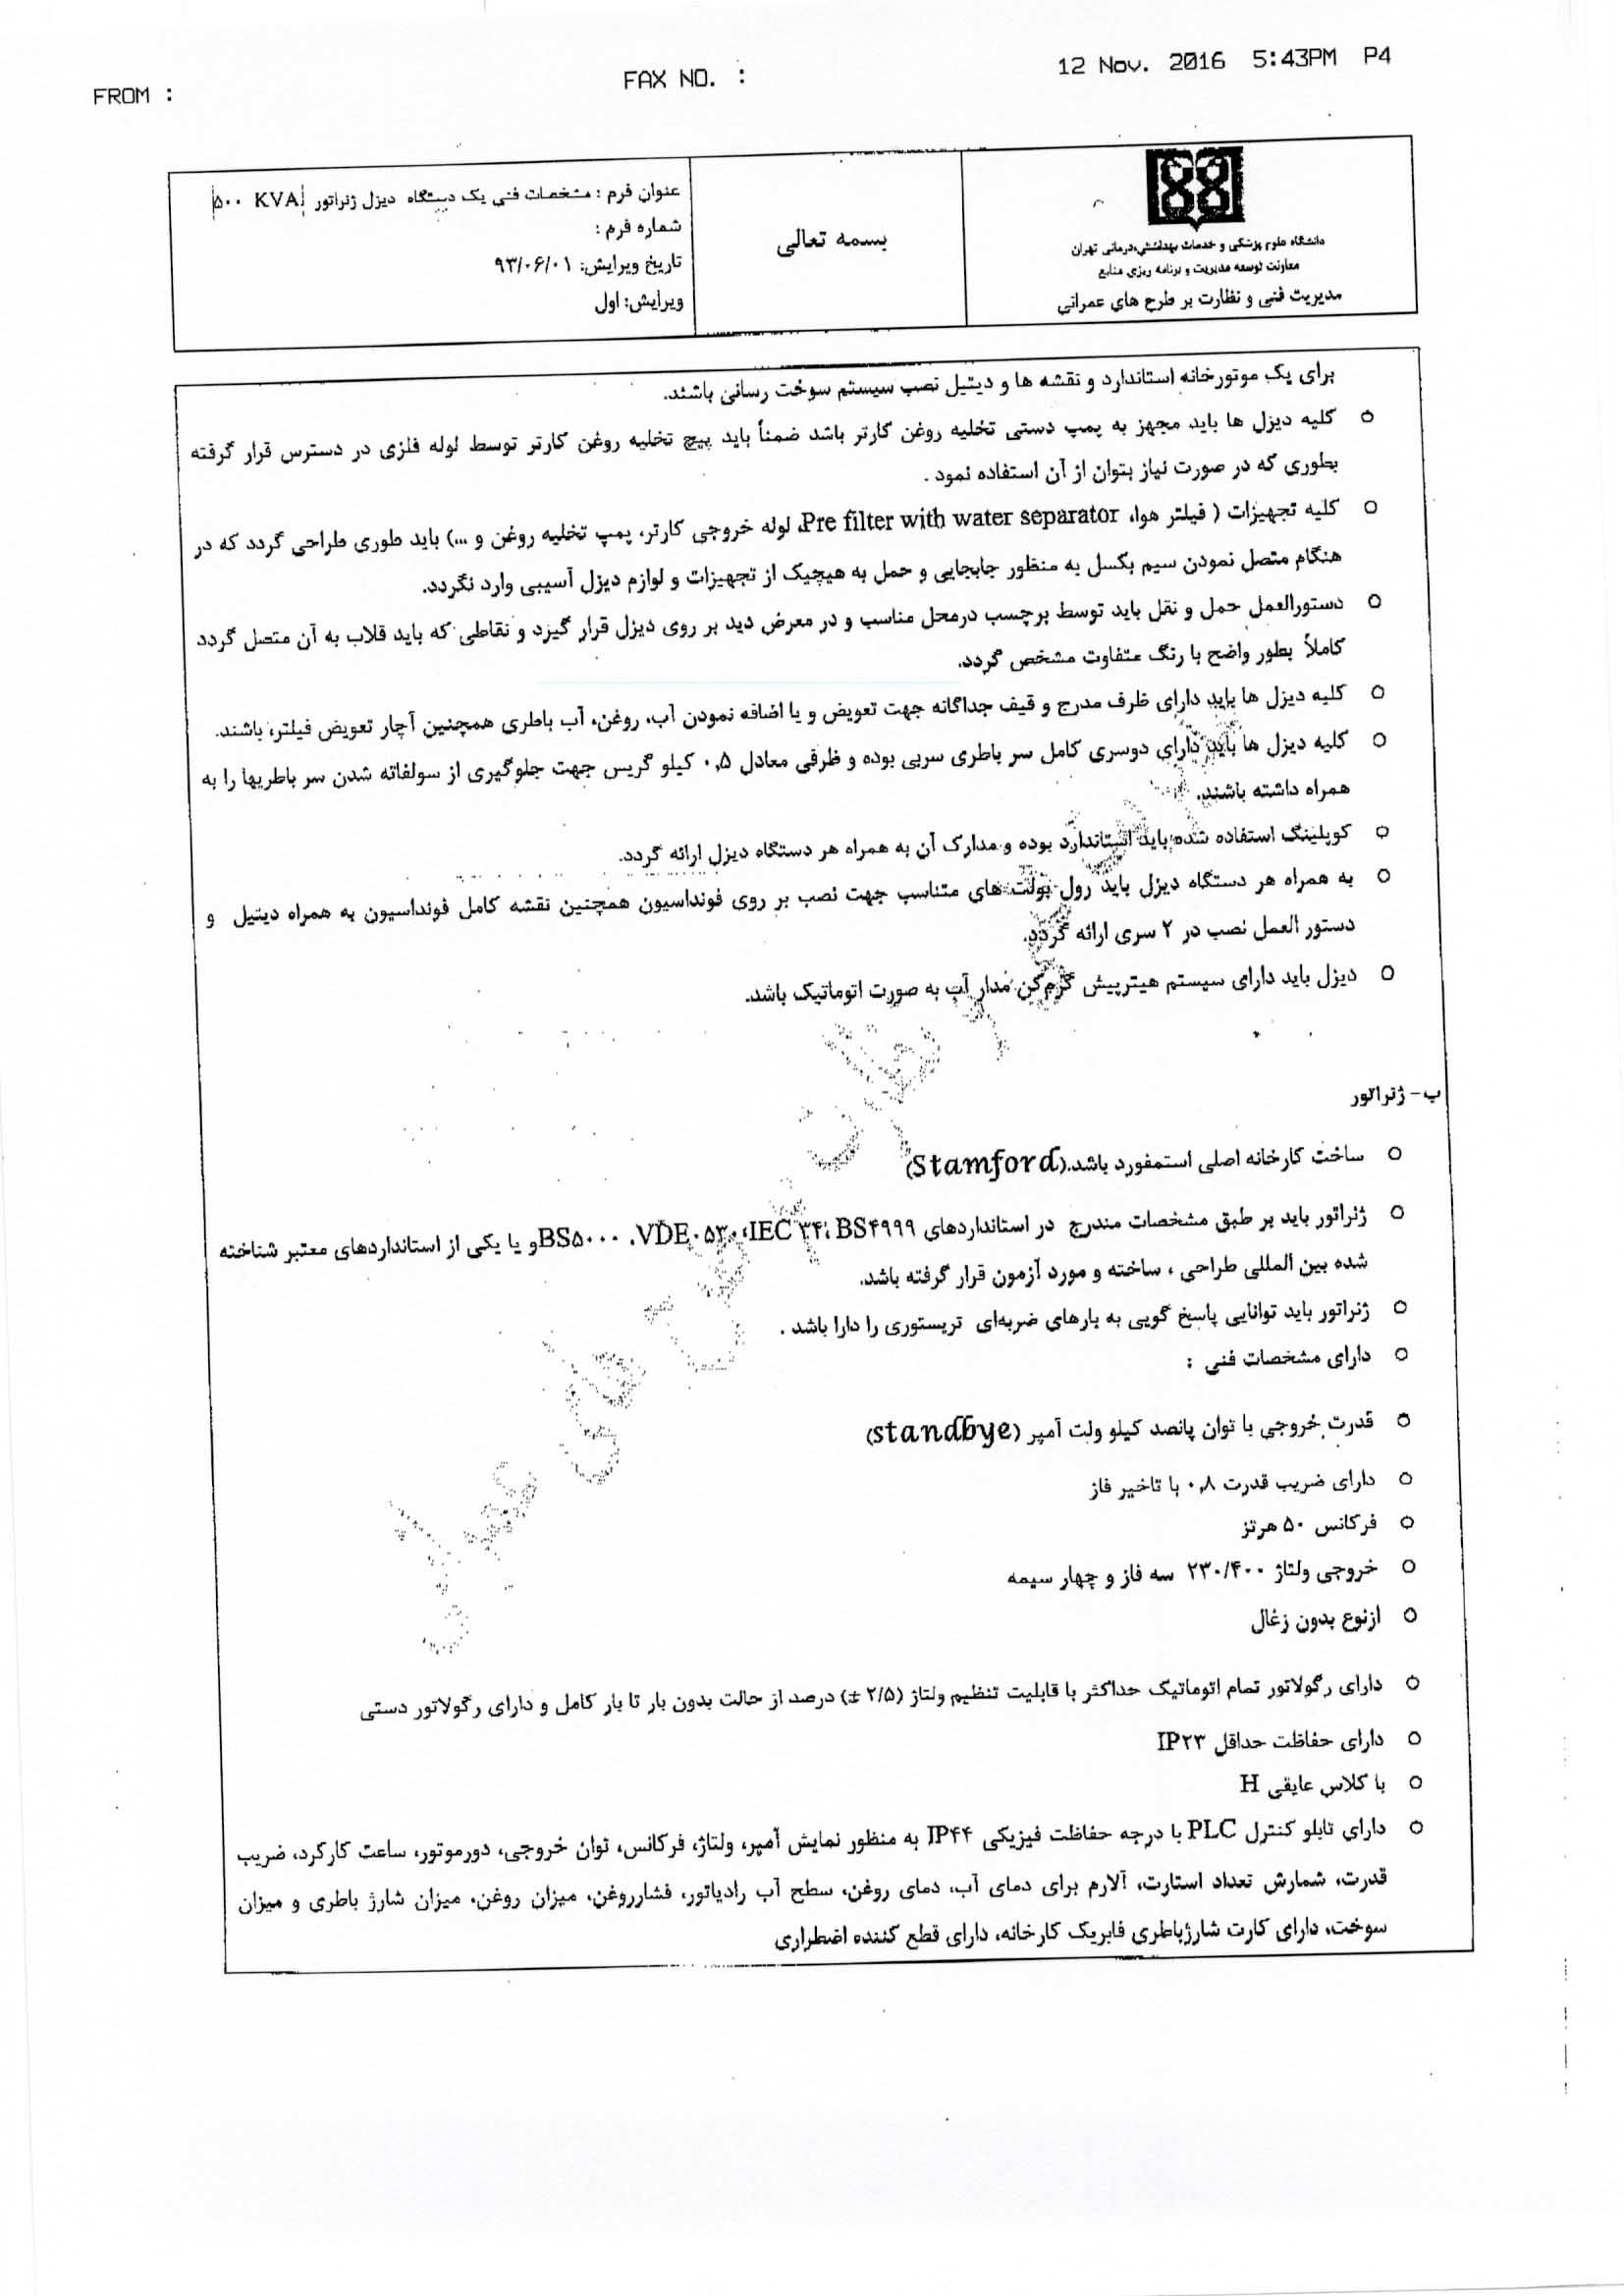 FROM :
FAX NO. :
12 Nov. 2016 5:43PM P4
دانشگاه علوم پزشکی و خدمات بهداشتی،درمانی تهران
معاونت توسعه مدیریت و برنامه ریزی منابع
مدیریت فنی و نظارت بر طرح های عمرانی
بسمه تعالی
عنوان فرم : مشخصات فنی یک دستگاه دیزل ژنراتور ۵۰۰ KVA
شماره فرم :
تاریخ ویرایش: ۹۳/۰۶/۰۱
ویرایش: اول
برای یک موتورخانه استاندارد و نقشه ها و دیتیل نصب سیستم سوخت رسانی باشند.
○ کلیه دیزل ها باید مجهز به پمپ دستی تخلیه روغن کارتر باشد ضمناً باید پیچ تخلیه روغن کارتر توسط لوله فلزی در دسترس قرار گرفته
بطوری که در صورت نیاز بتوان از آن استفاده نمود .
○ کلیه تجهیزات ( فیلتر هوا، Pre filter with water separator، لوله خروجی کارتر، پمپ تخلیه روغن و ...) باید طوری طراحی گردد که در
هنگام متصل نمودن سیم بکسل به منظور جابجایی و حمل به هیچیک از تجهیزات و لوازم دیزل آسیبی وارد نگردد.
○ دستورالعمل حمل و نقل باید توسط برچسب درمحل مناسب و در معرض دید بر روی دیزل قرار گیرد و نقاطی که باید قلاب به آن متصل گردد
کاملاً بطور واضح با رنگ متفاوت مشخص گردد.
○ کلیه دیزل ها باید دارای ظرف مدرج و قیف جداگانه جهت تعویض و یا اضافه نمودن آب، روغن، آب باطری همچنین آچار تعویض فیلتر، باشند.
○ کلیه دیزل ها باید دارای دوسری کامل سر باطری سربی بوده و ظرفی معادل ۰,۵ کیلو گریس جهت جلوگیری از سولفاته شدن سر باطریها را به
همراه داشته باشند.
○ کوپلینگ استفاده شده باید استاندارد بوده و مدارک آن به همراه هر دستگاه دیزل ارائه گردد.
○ به همراه هر دستگاه دیزل باید رول بولت های متناسب جهت نصب بر روی فونداسیون همچنین نقشه کامل فونداسیون به همراه دیتیل و
دستور العمل نصب در ۲ سری ارائه گردد.
○ دیزل باید دارای سیستم هیترپیش گرم‌کن مدار آب به صورت اتوماتیک باشد.
ب- ژنراتور
○ ساخت کارخانه اصلی استمفورد باشد.(Stamford)
○ ژنراتور باید بر طبق مشخصات مندرج در استانداردهای BS۴۹۹۹ ،IEC ۳۴ ،VDE۰۵۳۰ ،BS۵۰۰۰ و یا یکی از استانداردهای معتبر شناخته
شده بین المللی طراحی ، ساخته و مورد آزمون قرار گرفته باشد.
○ ژنراتور باید توانایی پاسخ گویی به بارهای ضربه‌ای تریستوری را دارا باشد .
○ دارای مشخصات فنی :
○ قدرت خروجی با توان پانصد کیلو ولت آمپر (standbye)
○ دارای ضریب قدرت ۰,۸ با تاخیر فاز
○ فرکانس ۵۰ هرتز
○ خروجی ولتاژ ۲۳۰/۴۰۰ سه فاز و چهار سیمه
○ ازنوع بدون زغال
○ دارای رگولاتور تمام اتوماتیک حداکثر با قابلیت تنظیم ولتاژ (۲/۵ ±) درصد از حالت بدون بار تا بار کامل و دارای رگولاتور دستی
○ دارای حفاظت حداقل IP۲۳
○ با کلاس عایقی H
○ دارای تابلو کنترل PLC با درجه حفاظت فیزیکی IP۴۴ به منظور نمایش آمپر، ولتاژ، فرکانس، توان خروجی، دورموتور، ساعت کارکرد، ضریب
قدرت، شمارش تعداد استارت، آلارم برای دمای آب، دمای روغن، سطح آب رادیاتور، فشارروغن، میزان روغن، میزان شارژ باطری و میزان
سوخت، دارای کارت شارژباطری فابریک کارخانه، دارای قطع کننده اضطراری